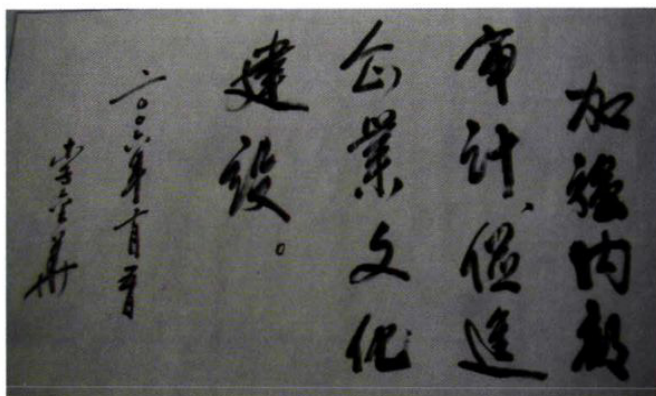 加強内部
审計、促進
企業文化
建設。
二〇〇六年
李金華